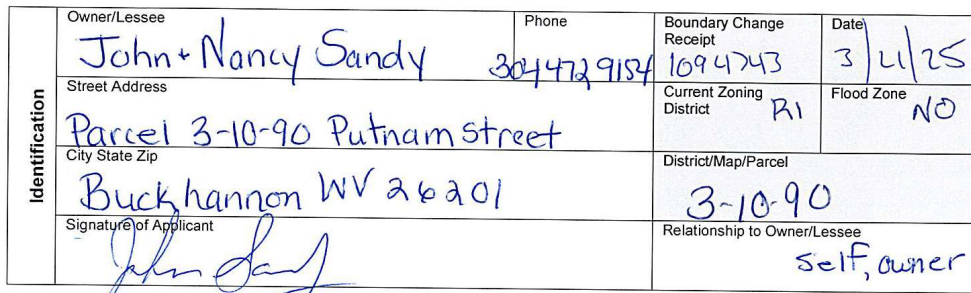 Identification
Owner/Lessee
John + Nancy Sandy
Phone
304 472 9154
Boundary Change Receipt
1094743
Date
3/4/25
Street Address
Parcel 3-10-90 Putnam Street
Current Zoning District
R1
Flood Zone
NO
City State Zip
Buckhannon WV 26201
District/Map/Parcel
3-10-90
Signature of Applicant
John Sandy
Relationship to Owner/Lessee
self, owner